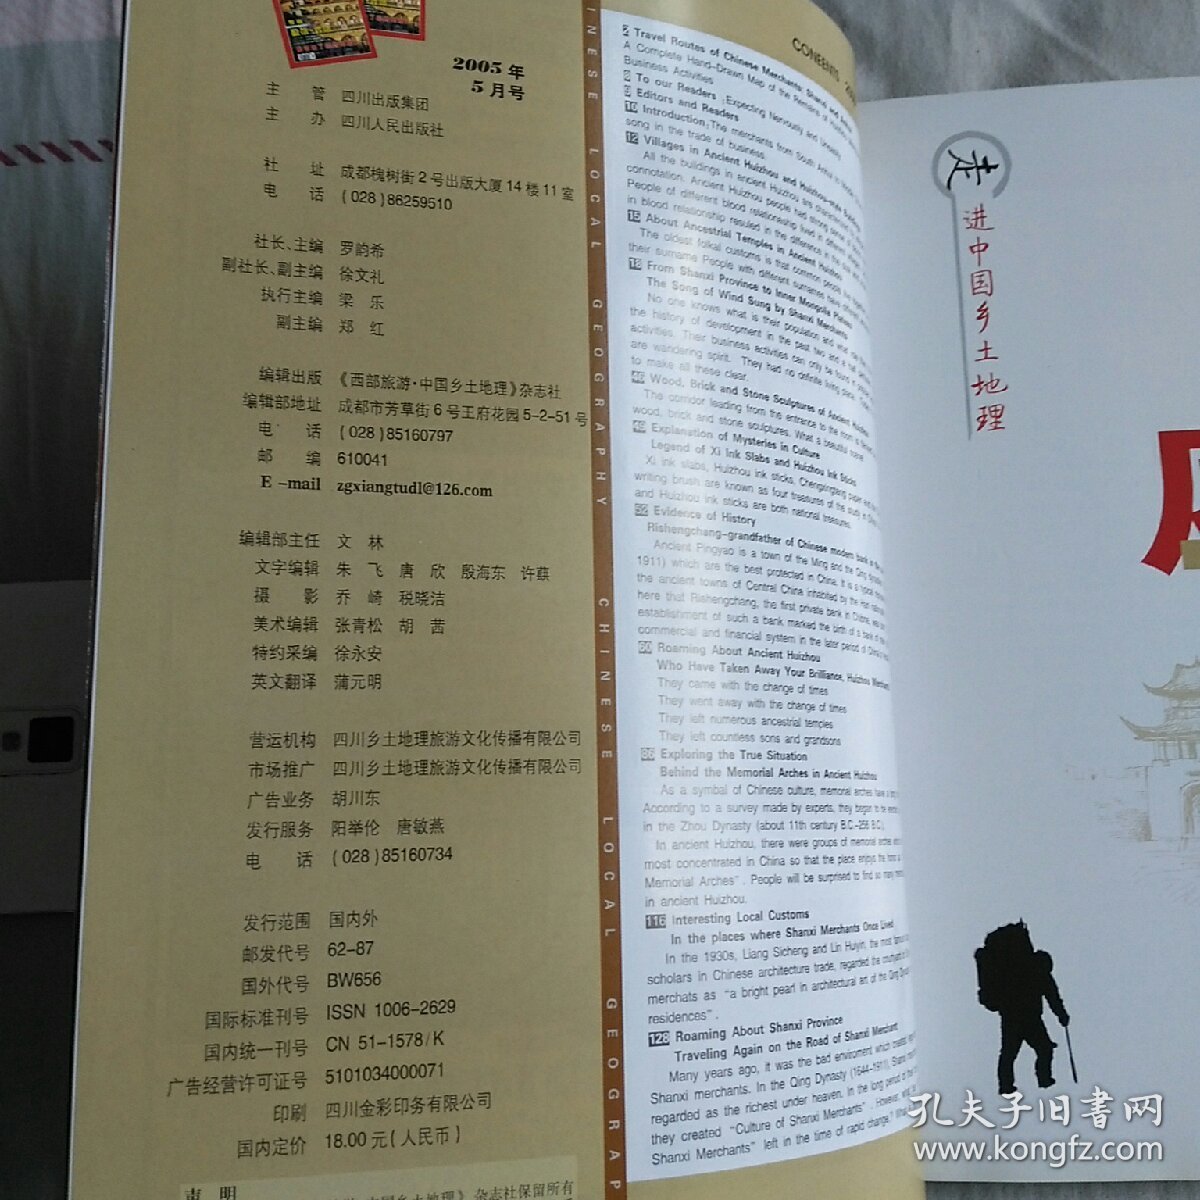 2005年
5月号
主 管 四川出版集团
主 办 四川人民出版社
社 址 成都槐树街2号出版大厦14楼11室
电 话 (028)86259510
社长、主编 罗韵希
副社长、副主编 徐文礼
执行主编 梁 乐
副主编 郑 红
编辑出版 《西部旅游·中国乡土地理》杂志社
编辑部地址 成都市芳草街6号王府花园5-2-51号
电 话 (028)85160797
邮 编 610041
E-mail zgxiangtudl@126.com
编辑部主任 文 林
文字编辑 朱 飞 唐 欣 殷海东 许蕻
摄 影 乔 崎 税晓洁
美术编辑 张青松 胡 茜
特约采编 徐永安
英文翻译 蒲元明
营运机构 四川乡土地理旅游文化传播有限公司
市场推广 四川乡土地理旅游文化传播有限公司
广告业务 胡川东
发行服务 阳举伦 唐敏燕
电 话 (028)85160734
发行范围 国内外
邮发代号 62-87
国外代号 BW656
国际标准刊号 ISSN 1006-2629
国内统一刊号 CN 51-1578/K
广告经营许可证号 5101034000071
印刷 四川金彩印务有限公司
国内定价 18.00元(人民币)
声 明
中国乡土地理》杂志社保留所有
INESE LOCAL GEOGRAPHY CHINESE LOCAL GEOGRAP
CONEENTS
Travel Routes of Chinese Merchants: Shanxi and
A Complete Hand-Drawn Map of the Remains of
Business Activities
8 To our Readers : Expecting Nervously and Uneasily
9 Editors and Readers
10 Introduction: The merchants from South Anhui to
song in the trade of business.
12 Villages in Ancient Huizhou and Huizhou-style
All the buildings in ancient Huizhou are
connotation. Ancient Huizhou people had strong sense of
People of different blood relationship lived in different
in blood relationship resulted in the difference in
15 About Ancestral Temples in Ancient Huizhou
The oldest folkal customs is that common people
their surname People with different surnames have
18 From Shanxi Province to Inner Mongolia
The Song of Wind Sung by Shanxi Merchants
No one knows what is their population and what
the history of development in the past two and a half
activities. Their business activities can only be found in
are wandering spirit. They had no definite living place.
to make all these clear.
Wood, Brick and Stone Sculptures of Ancient Huizhou
The corridor leading from the entrance to the room is
wood, brick and stone sculptures. What a beautiful
Explanation of Mysteries in Culture
Legend of Xi Ink Slabs and Huizhou Ink Sticks
Xi ink slabs, Huizhou ink sticks, Chengxingtang paper and
writing brush are known as four treasures of the study in
and Huizhou ink sticks are both national treasures.
52 Evidence of History
Rishengchang-grandfather of Chinese modern bank
Ancient Pingyao is a town of the Ming and the Qing
1911) which are the best protected in China. It is a typical
the ancient towns of Central China inhabited by the Han
here that Rishengchang, the first private bank in Chinese, was
establishment of such a bank marked the birth of a bank of
commercial and financial system in the later period of
60 Roaming About Ancient Huizhou
Who Have Taken Away Your Brilliance, Huizhou
They came with the change of times
They went away with the change of times
They left numerous ancestral temples
They left countless sons and grandsons
86 Exploring the True Situation
Behind the Memorial Arches in Ancient Huizhou
As a symbol of Chinese culture, memorial arches have a
According to a survey made by experts, they began to be
in the Zhou Dynasty (about 11th century B.C.-256 B.C.)
In ancient Huizhou, there were groups of memorial arches
most concentrated in China so that the place enjoys the
Memorial Arches". People will be surprised to find so many
in ancient Huizhou.
116 Interesting Local Customs
In the places where Shanxi Merchants Once Lived
In the 1930s, Liang Sicheng and Lin Huiyin, the most
scholars in Chinese architecture trade, regarded the
merchats as "a bright pearl in architectural art of the Qing
residences".
128 Roaming About Shanxi Province
Traveling Again on the Road of Shanxi Merchant
Many years ago, it was the bad enviroment which
Shanxi merchants. In the Qing Dynasty (1644-1911), Shanxi
regarded as the richest under heaven. In the long period of
they created "Culture of Shanxi Merchants". However,
Shanxi Merchants" left in the time of rapid change?
走
进中国乡土地理
孔夫子旧書网
www.kongfz.com